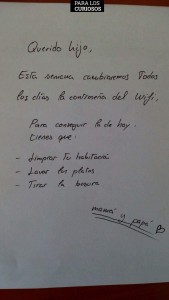 PARA LOS
CURIOSOS
Querido hijo,
Esta semana cambiaremos todos
los días la contraseña del Wifi,
Para conseguir la de hoy
tienes que:
- Limpiar tu habitación
- Lavar los platos
- Tirar la basura
mamá y papá